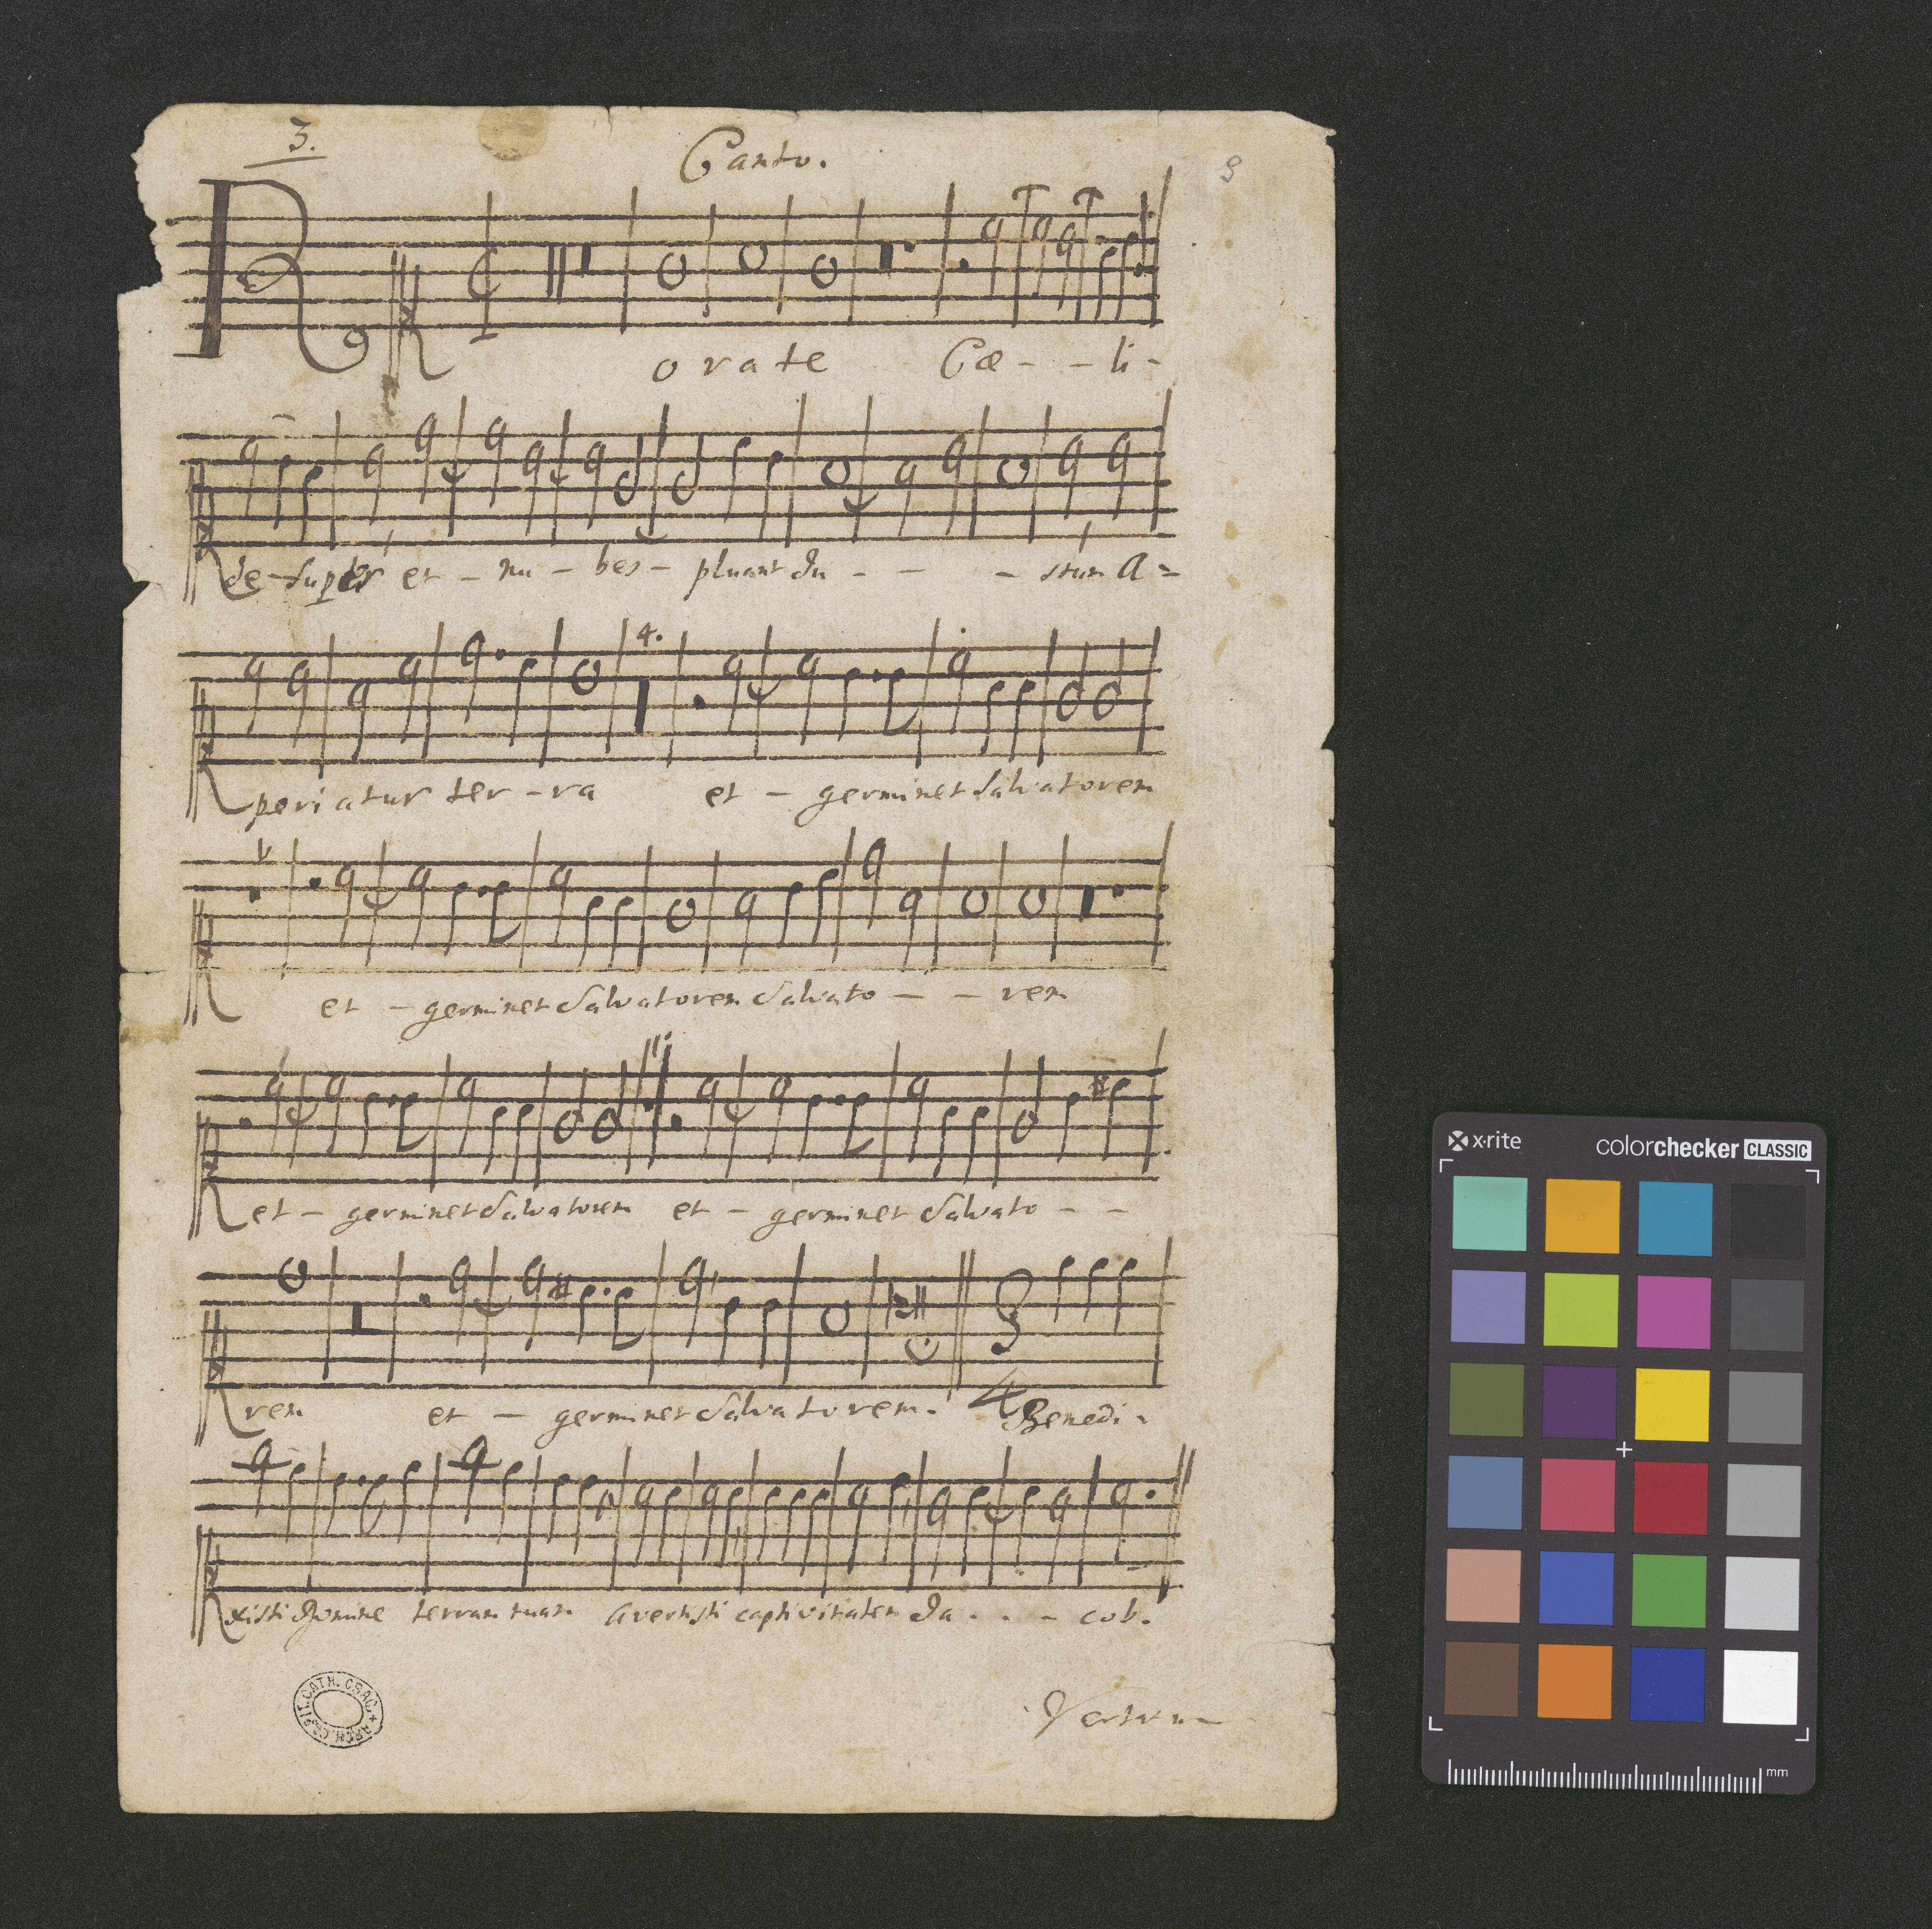 3.
Canto.
9
R
orate Cæ - - li -
de - super et - nu - bes - pluant Ju - - - stum A =
4.
periatur ter - ra et - germinet Salvatorem
et - germinet Salvatorem Salvato - - rem
et - germinet Salvatorem et - germinet Salvato - -
rem et - germinet Salvatorem. Benedi -
xisti Domine terram tuam avertisti captivitatem Ja - - - cob.
ARCH. CAPIT. CATH. CRAC.
x·rite colorchecker CLASSIC
mm